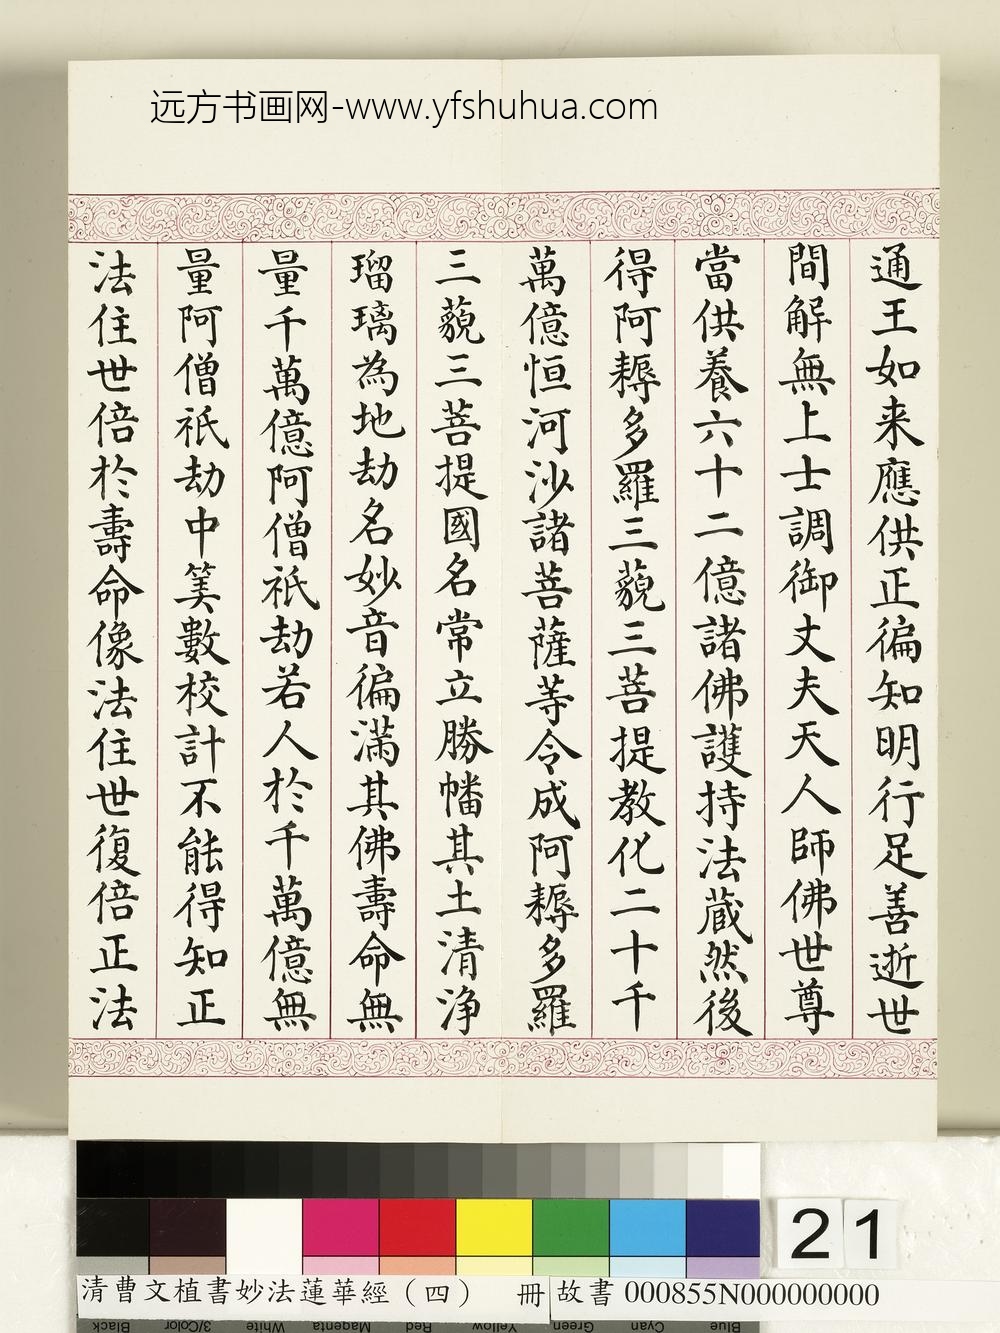 远方书画网-www.yfshuhua.com
通王如来應供正徧知明行足善逝世
間解無上士調御丈夫天人師佛世尊
當供養六十二億諸佛護持法蔵然後
得阿耨多羅三藐三菩提教化二十千
萬億恒河沙諸菩薩等令成阿耨多羅
三藐三菩提國名常立勝幡其土清浄
瑠璃為地劫名妙音徧滿其佛壽命無
量千萬億阿僧祇劫若人於千萬億無
量阿僧祇劫中筭數校計不能得知正
法住世倍於壽命像法住世復倍正法
21
清曹文植書妙法蓮華經（四） 冊 故書 000855N000000000
Black 3/Color White Magenta Red Yellow Green Cyan Blue